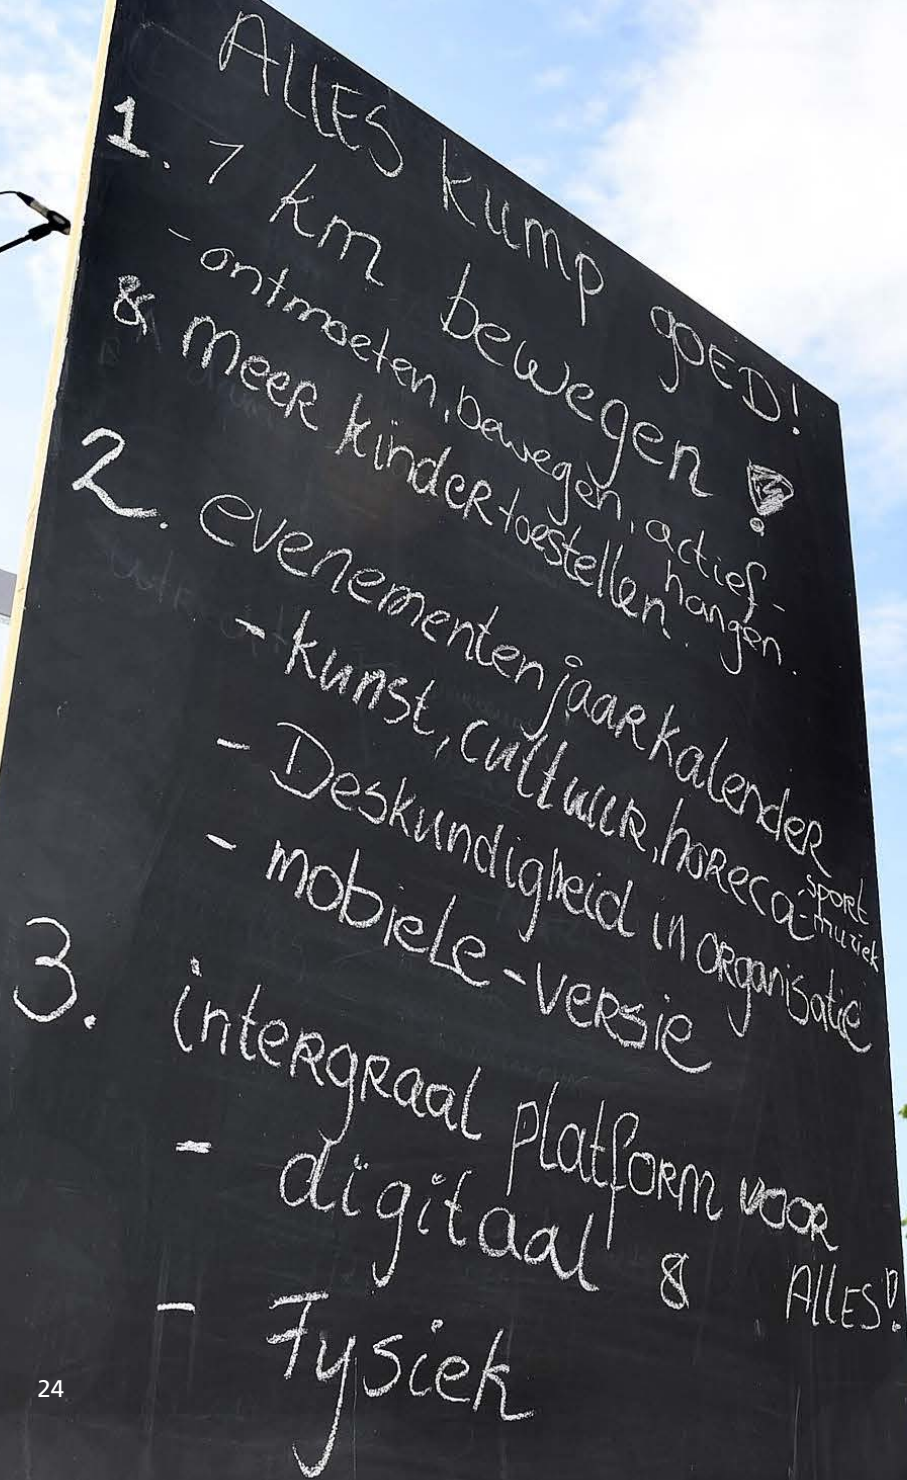 ALLES kump goED!
1. 1 km bewegen!
- ontmoeten, bewegen, actief-
hangen.
& meer kindertoestellen.
2. evenementenjaarkalender
- kunst, cultuur, horeca - sport
- muziek
- Deskundigheid in organisatie
- mobiele-versie
3. intergraal platform voor
ALLES!
- digitaal &
- Fysiek
24